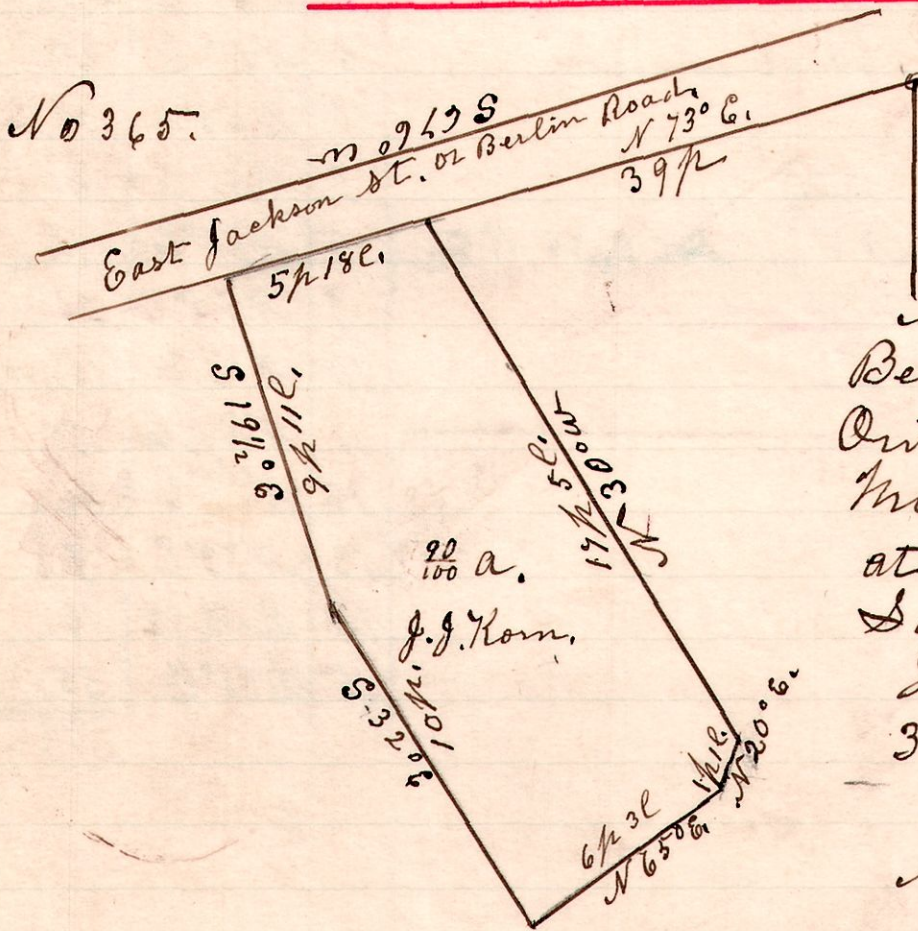 No 365.
S 76° W
East Jackson St. or Berlin Road.
N 73° E.
39p
5p 18l.
S 19½° E
9p 11l.
17p 5l.
N 30° W
90/100 a.
J. J. Korn.
S 32° E
10p.
1p 1l.
N 20° E.
6p 3l
N 65° E.
Be
at
S.
3